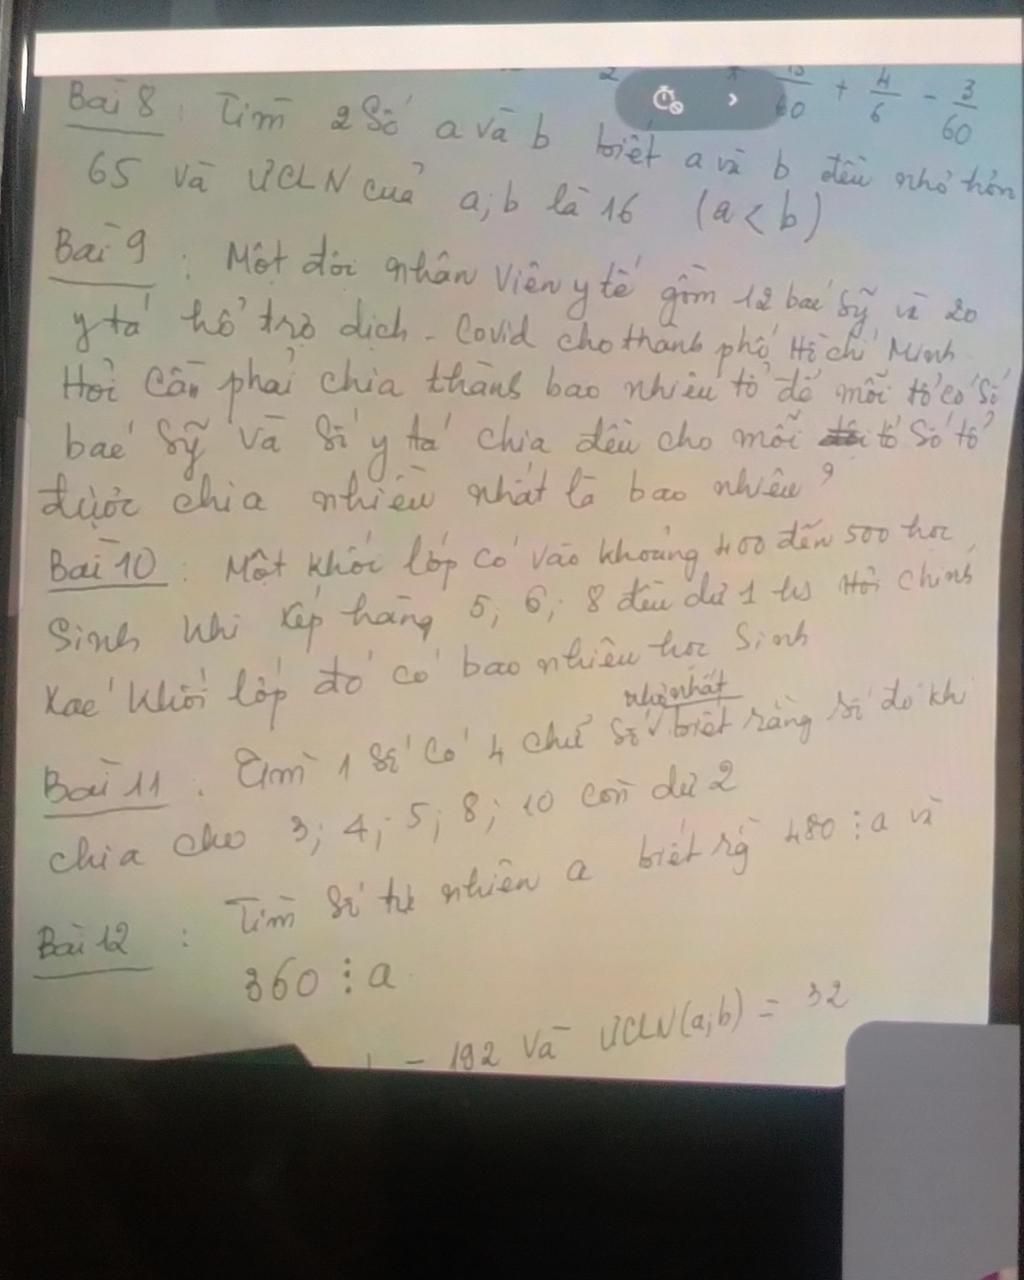 2 15/60 + 4/6 - 3/60
Bài 8 : Tìm 2 số a và b biết a và b đều nhỏ hơn
65 và ƯCLN của a; b là 16 (a < b)
Bài 9 : Một đội nhân viên y tế gồm 12 bác sỹ và 20
y tá hỗ trợ dịch - Covid cho thành phố Hồ Chí Minh
Hỏi cần phải chia thành bao nhiêu tổ để mỗi tổ có số
bác sỹ và số y tá chia đều cho mỗi tổ số tổ
được chia nhiều nhất là bao nhiêu ?
Bài 10 : Một khối lớp có vào khoảng 400 đến 500 học
sinh khi xếp hàng 5; 6; 8 đều dư 1 hs Hỏi chính
xác khối lớp đó có bao nhiêu học sinh
Bài 11 . Tìm 1 số có 4 chữ số nhỏ nhất biết rằng số đó khi
chia cho 3; 4; 5; 8; 10 còn dư 2
Bài 12 : Tìm số tự nhiên a biết rg 480 ⋮ a và
360 ⋮ a
- 192 và ƯCLN(a;b) = 32